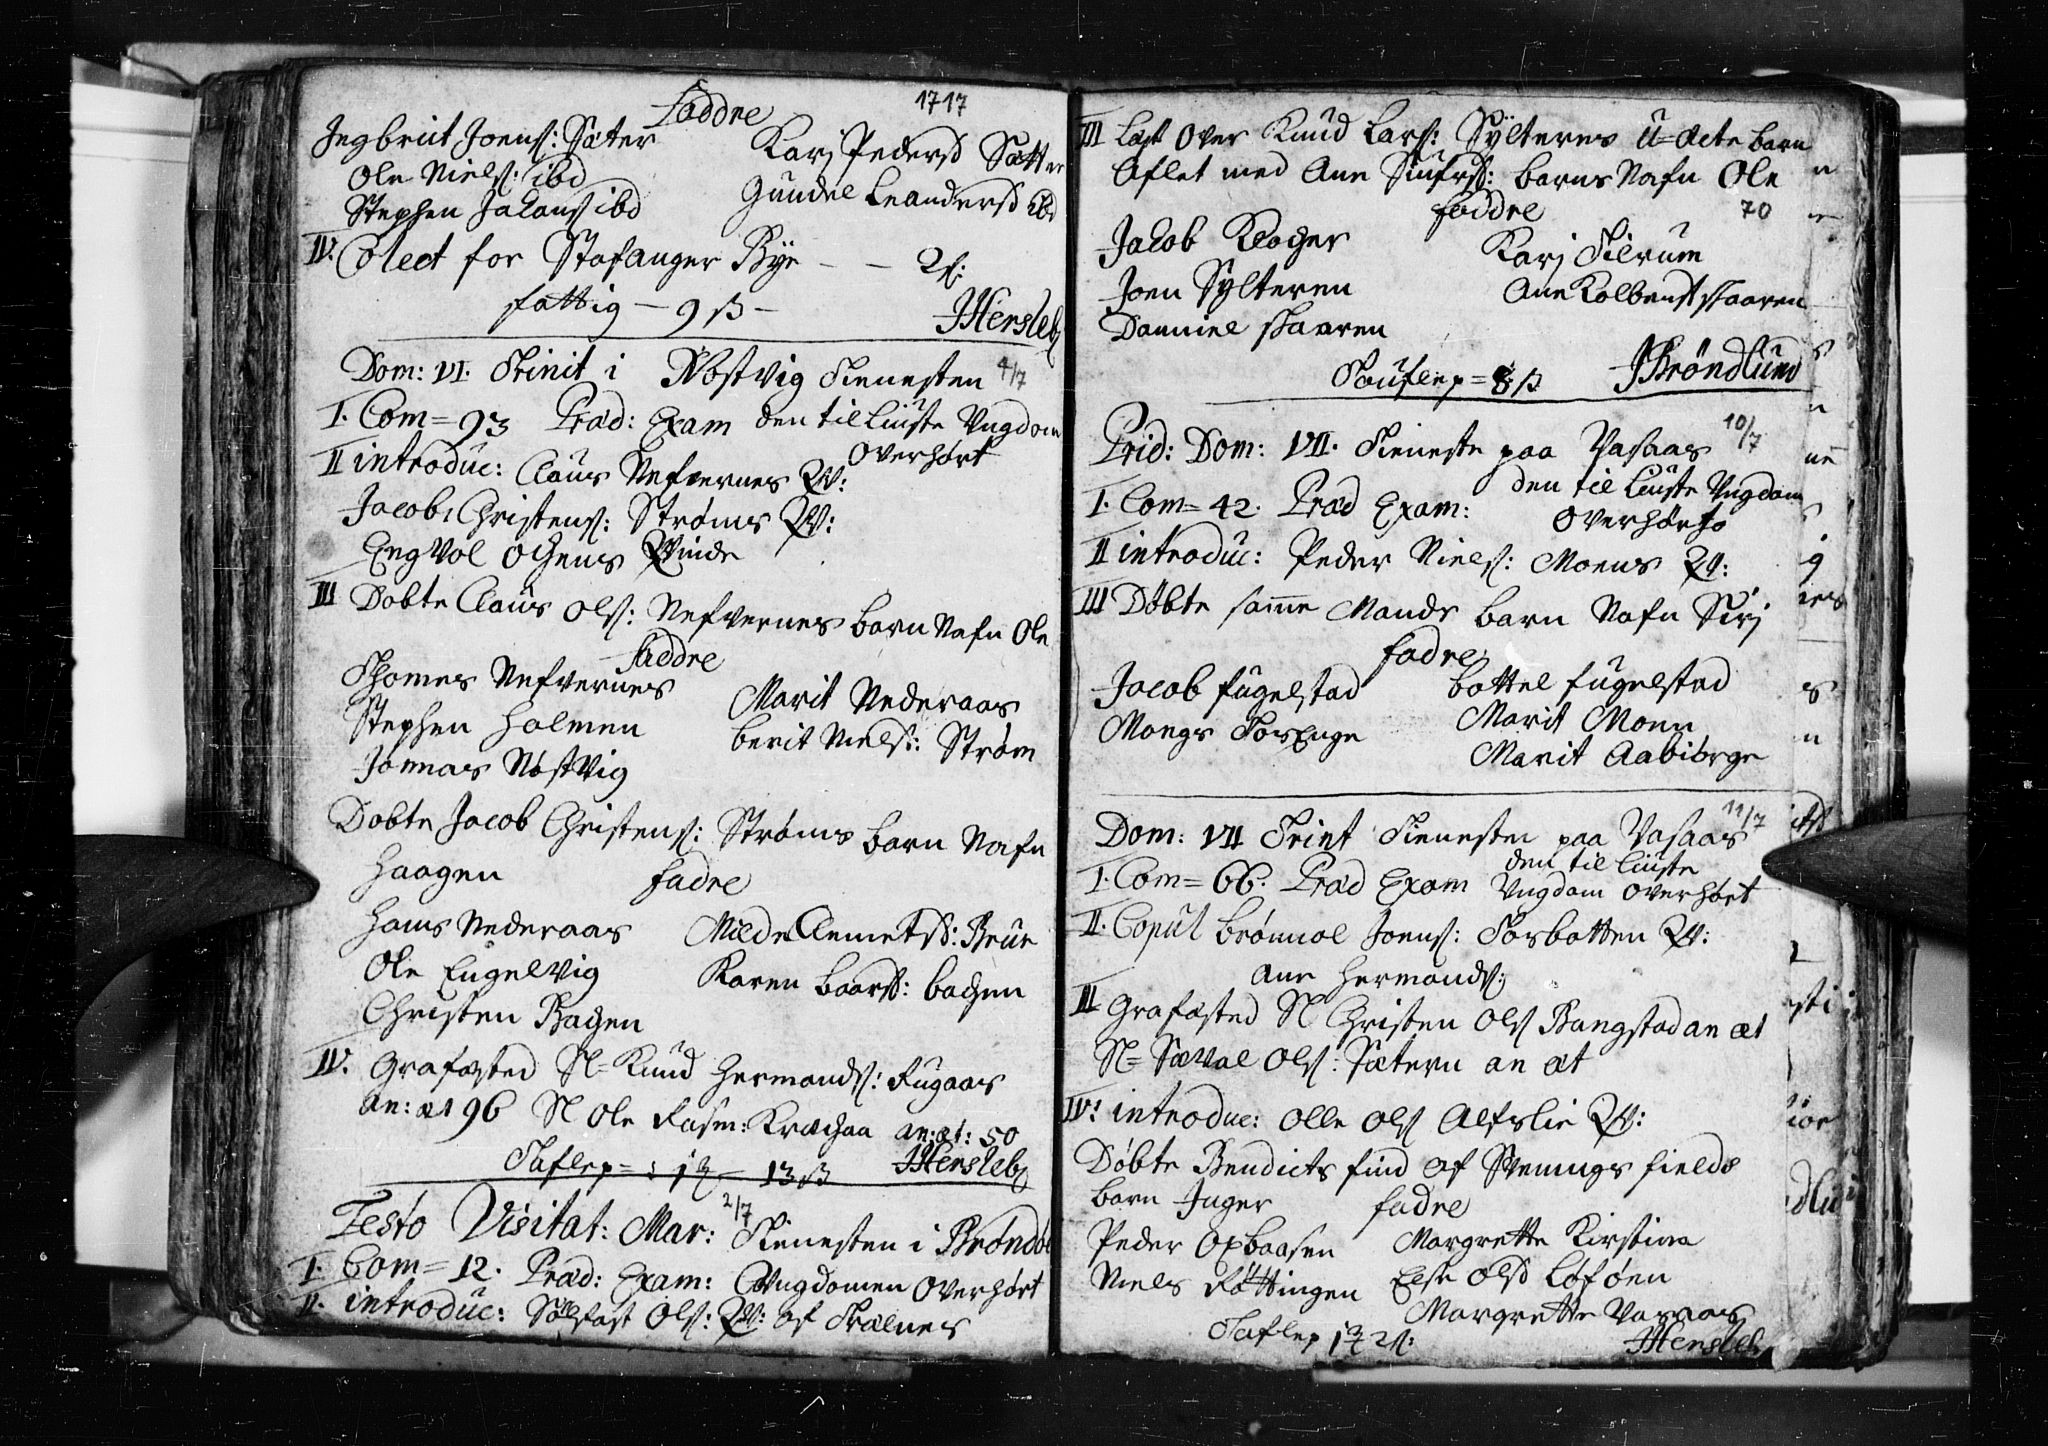 1717
faddre
Jngbrict Joens: Sæter
Karj Pedersd Sætter
Ole Niels: ibd
Gundel Leandersd ibd
Stephen Jacans ibd
IV. Colect for Stafanger Bye - - 2s:
fattig - 9 ß -
JHersleb
Dom: VI. Trinit i Nøstvig Tienesten 4/7
I. Com = 93 Præd: Exam den til Liuste Ungdom
overhørt
II introduc: Claus Nefvernes Qv:
Jacob Christens: Strøms Qv:
Engvol ochens Qvinde
III Døbte Claus Ols: Nefvernes barn Nafn Ole
faddre
Thomes Nefvernes
Marit Nederaas
Stephen Holmen
berit Niels: Strøm
Jonnas Nøstvig
Døbte Jacob Christens: Strøms barn Nafn
Haagen fadre
Hans Nederaas
Milde Clemetsd: Brue
Ole Engelvig
Karen baarsd: bachen
Christen Bachen
IV. Grafæsted Sl= Knud Hermands: Rugaas
an: æt 96 Sl Ole Rasm: Kræchaa an: æt: 50
Taflep = : 1 - 13 ß JHersleb
Festo Visitat: Mar: 2/7 Tienesten i Brøndø
I. Com = 12. Præd: Exam: Ungdomen overhørt
II. introduc: Sølfast Ols: Qv: af Trælnes
III Løst over Knud Lars: Sylterens U=ecte barn
Aflet med Ane Siufrsd: barns Nafn Ole
faddre 70
Jacob Klocher
Karj Tilrum
Joen Sylteren
Ane Kolbensd skaaren
Danniel skaaren
Tauflep = 8 ß JBrøndlund
Prid: Dom: VII. Tieneste paa Vasaas 10/7
I. Com = 42. Præd Exam: den til Liuste Ungdom
overhørt
II introduc: Peder Niels: Moens Qv:
III Døbte samme Mands barn Nafn Sirj
fadre
Jacob fugelstad
bottel fugelsted
Mongs Torsenge
Marit Moen
Marit Aabiørge
Dom: VII Trint Tienesten paa Vasaas 11/7
I. Com = 66. Præd Exam den til Liuste
Ungdom overhørt
II. Copul brønnol Joens: Torsbotten Qv:
Ane Hermands:
III Grafæsted Sl Christen Ols Bangstad an æt
Sl= Sæval Ols: Sætern an æt
IV: introduc: Olle Ols Alfslie Qv:
Døbte Bendicts find af Stenings field
barn Inger fadre
Peder Opbaasen
Margrette Kirstina
Niels Røttingen
Else Olsd Løføen
Margrette Vassaas
Taflep 1 2 s:
JHersleb